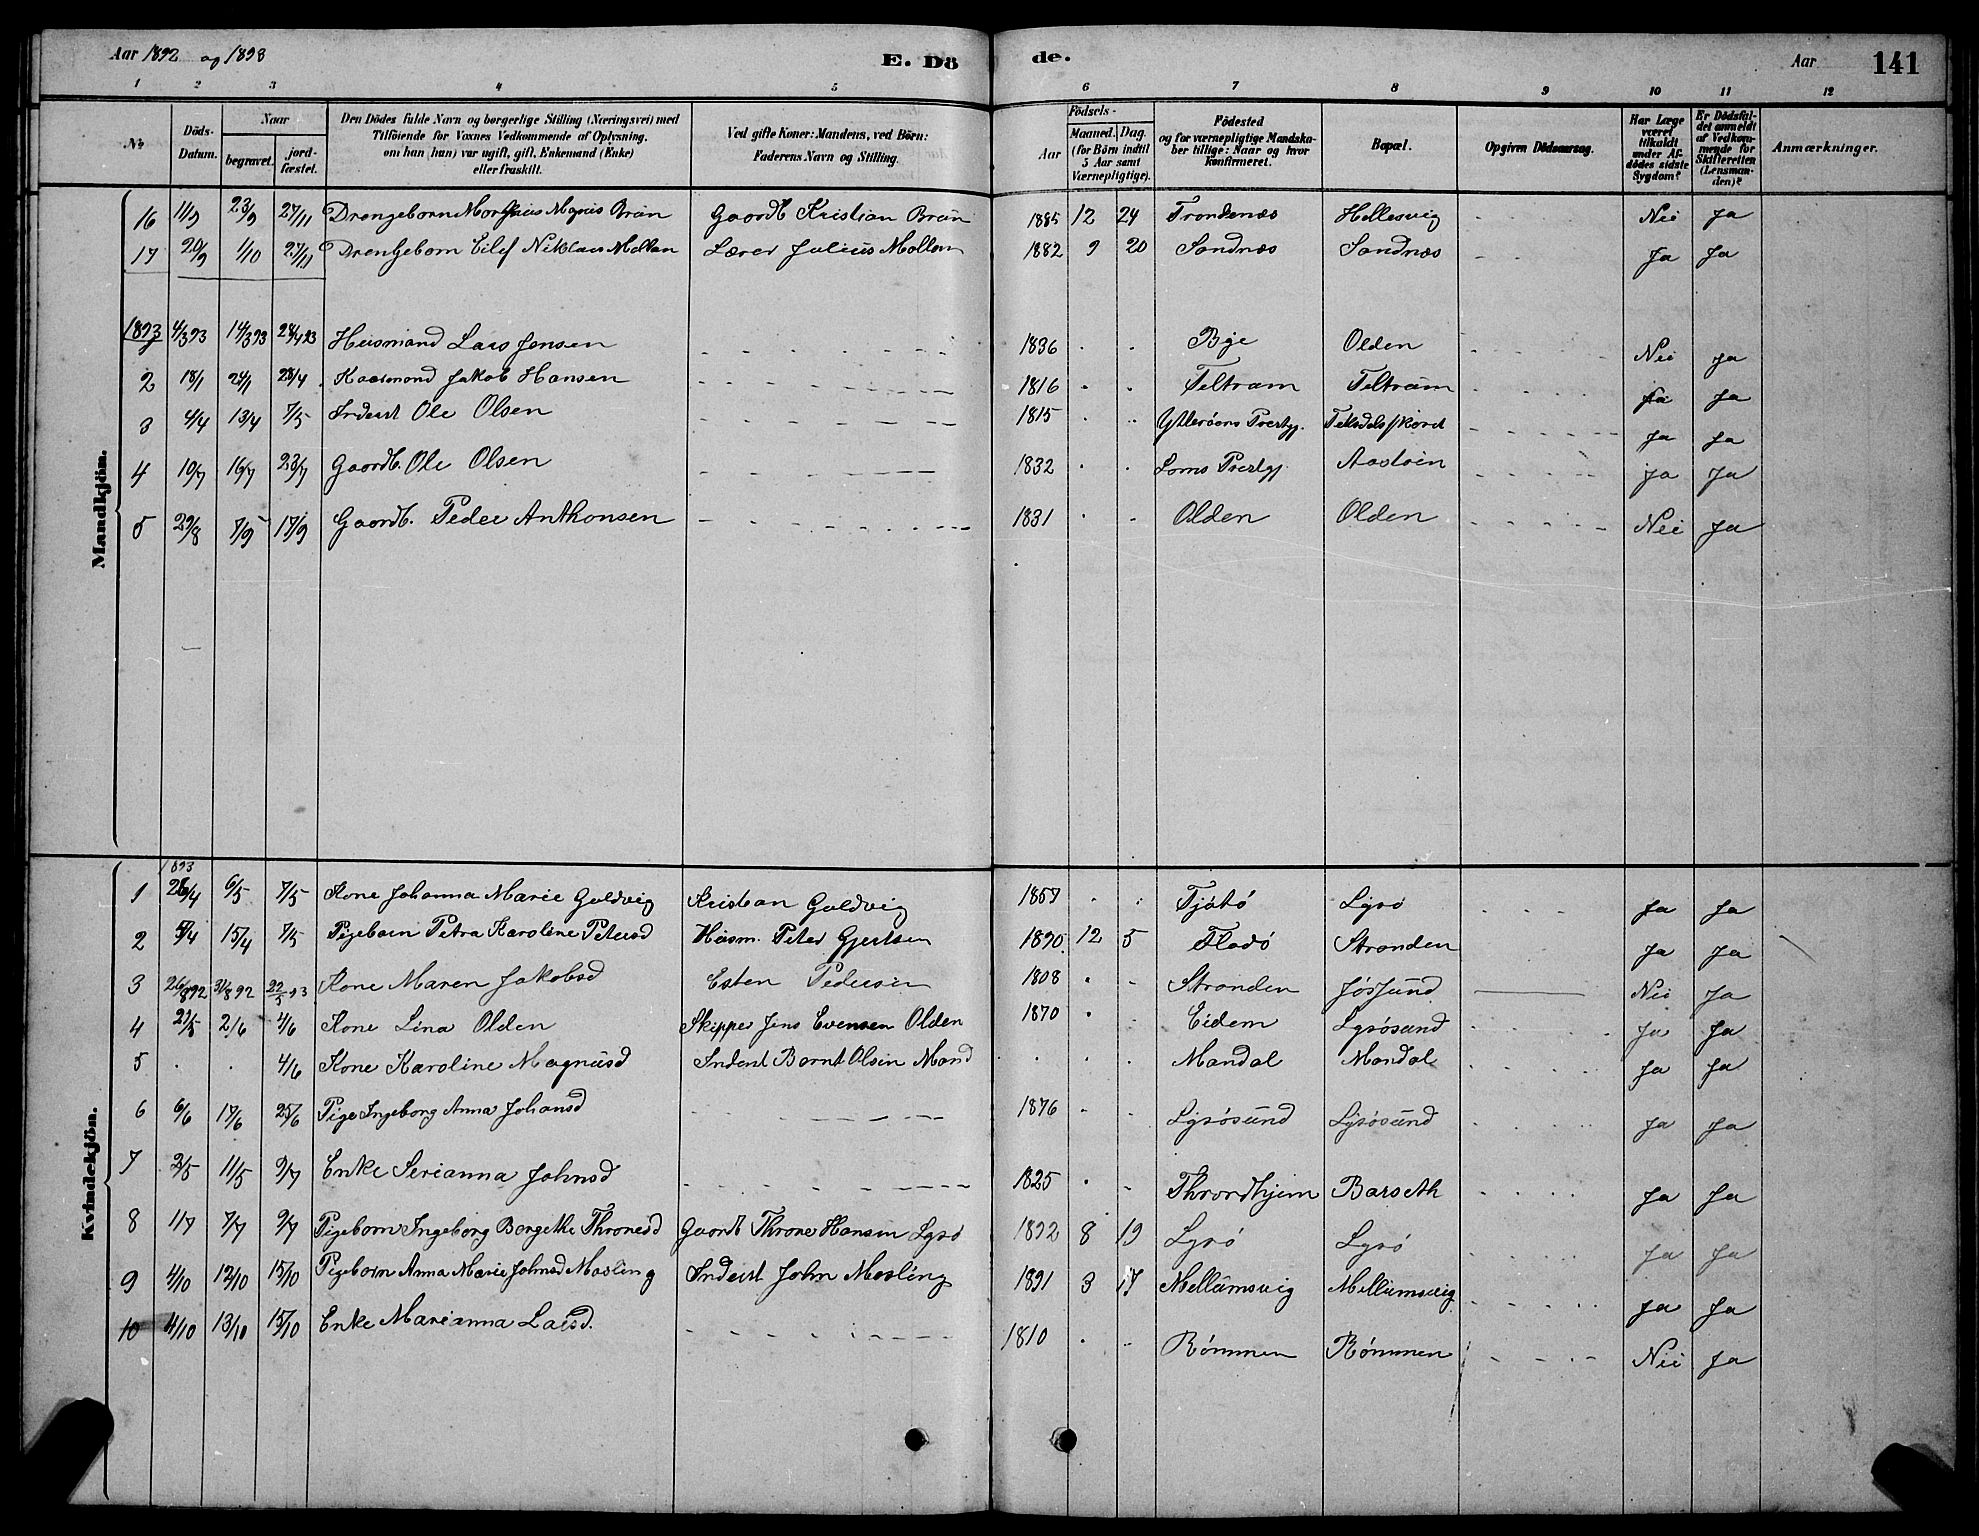 Aar 1892 og 1893 E. Dö de. Aar 141
1 2 3 4 5 6 7 8 9 10 11 12
No Döds-Datum. Naar begravet. jordfæstet. Den Dödes fulde Navn og borgerlige Stilling (Næringsvei) med Tilföiende for Voxnes Vedkommende af Oplysning, om han (hun) var ugift, gift, Enkemand (Enke) eller fraskilt. Ved gifte Koner: Mandens, ved Börn: Faderens Navn og Stilling. Födsels- Aar Maaned. Dag. (for Börn indtil 5 Aar samt Værnepligtige). Födested og for værnepligtige Mandskaber tillige: Naar og hvor konfirmeret. Bopæl. Opgiven Dödsaarsag. Har Læge været tilkaldt under Afdödes sidste Sygdom? Er Dödsfaldet anmeldt af Vedkommende for Skifteretten (Lensmanden)? Anmærkninger.
Mandkjön.
16 11/9 23/9 27/11 Drengebarn Magnus Brün Gaardb Kristian Brün 1885 12 24 Trondenæs Hellesvig Nei Ja
17 20/9 1/10 27/11 Drengebarn Eilef Niklaus Mollan Lærer Julius Mollan 1882 9 20 Sandnæs Sandnæs Ja Ja
1893
1 4/3 93 14/3 93 28/4 93 Husmand Lars Jensen 1836 Bye Olden Nei Ja
2 18/1 24/1 28/4 Kaarmand Jakob Hansen 1816 Teltram Teltram Ja Ja
3 4/4 13/4 7/5 Inderst Ole Olsen 1815 Ytterøens Prestgj. Ja Ja
4 10/7 16/7 23/7 Gaardb. Ole Olsen 1832 Loms Prestgj Aasløin Ja Ja
5 29/8 7/9 17/9 Gaardb. Peder Anthonsen 1831 Olden Olden Nei Ja
Kvindekjön.
1893
1 26/4 6/5 7/5 Kone Johanna Marie Guldvig Kristian Guldvig 1857 Tjøtø Lysø Ja Ja
2 5/4 15/4 7/5 Pigebarn Petra Karoline Petersd Husm. Peter Gjertsen 1890 12 5 Fladø Stranden Ja Ja
3 26/8 92 31/8 92 22/5 93 Kone Maren Jakobsd Esten Pedersen 1808 Stranden Jøssund Nei Ja
4 27/5 2/6 4/6 Kone Lina Olden Skipper Jens Evensen Olden 1870 Eidem Lysøsund Ja Ja
5 4/6 Kone Karoline Magnusd Inderst Bernt Olsen Mand Mandal Mandal Ja Ja
6 6/6 17/6 25/6 Pige Ingeborg Anna Johansd 1876 Lysøsund Lysøsund Ja Ja
7 2/5 11/5 9/7 Enke Serianna Johnsd 1825 Throndhjem Barseth Ja Ja
8 1/7 7/7 9/7 Pigebarn Ingeborg Bergitte Thronesd Gaardb Throne Hansen Lysø 1892 8 19 Lysø Lysø Ja Ja
9 4/10 12/10 15/10 Pigebarn Anna Marie Johnsd Mosling Inderst John Mosling 1891 3 17 Mellumsvig Mellumsvig Ja Ja
10 4/10 13/10 15/10 Enke Marianna Larsd. 1810 Rømmen Rømmen Nei Ja